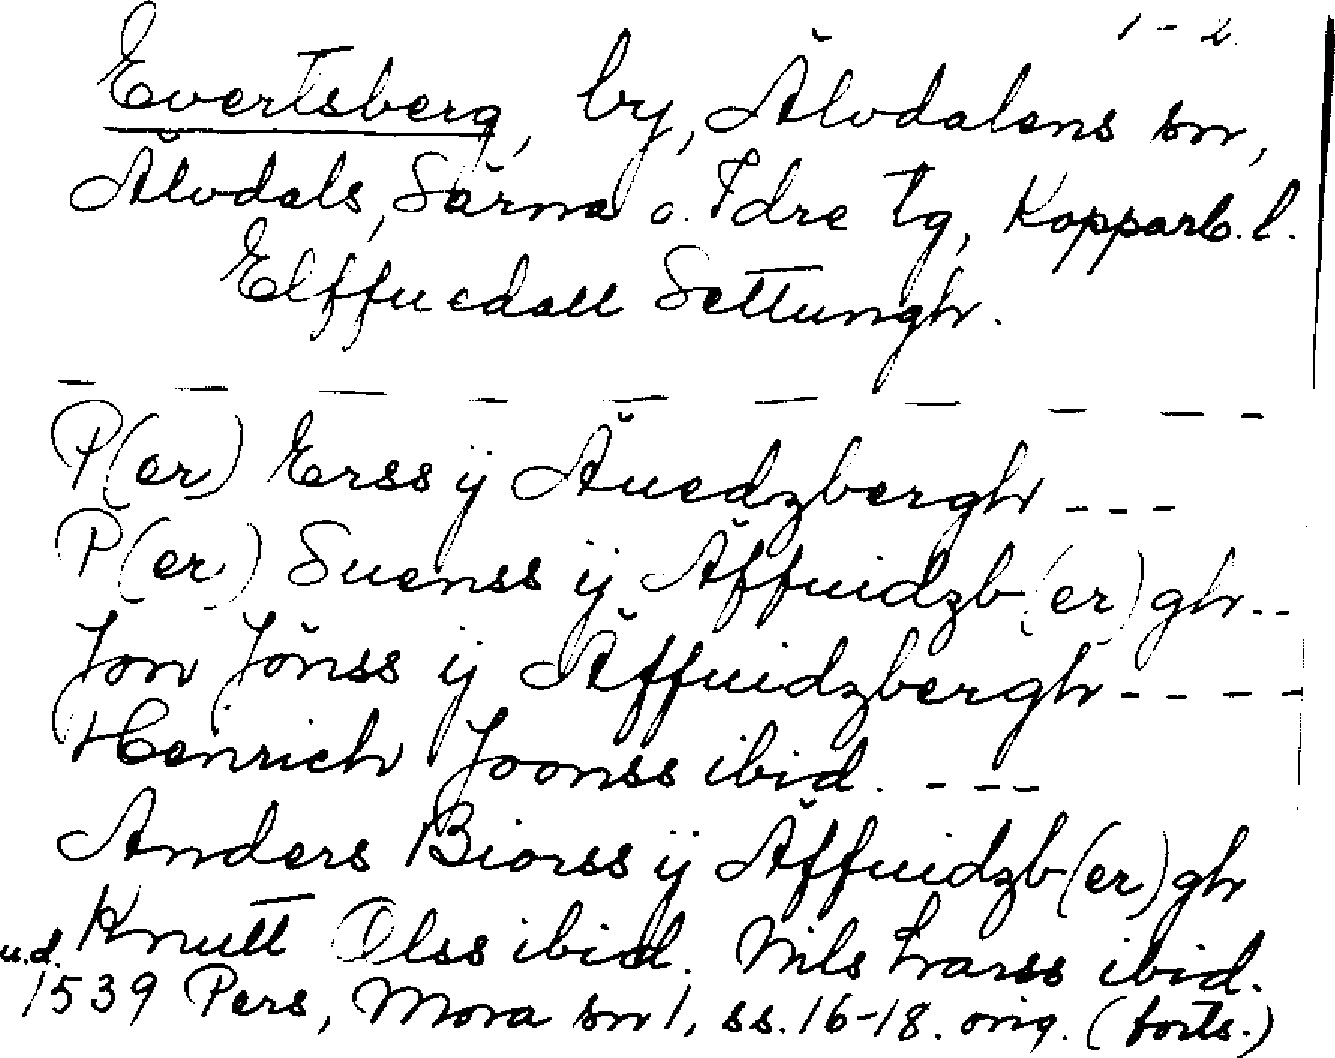 1-2.
Evertsberg, by, Älvdalens sn,
Älvdals, Särna o. Idre tg, Kopparb. l.
Elffuedall Settungh.
— — — — — — — — — —
P(er) Erss ÿ Äuedzbergh ---
P(er) Suenss ÿ Äffuidzb(er)gh--
Jon Jönss ÿ Äffuidzbergh----
Henrich Joonss ibid. ---
Anders Biorss ÿ Äffuidzb(er)gh
Knutt Olss ibid. Nils Larss ibid.
u.d.
1539 Pers, Mora sn 1, ss. 16-18. orig. (forts.)